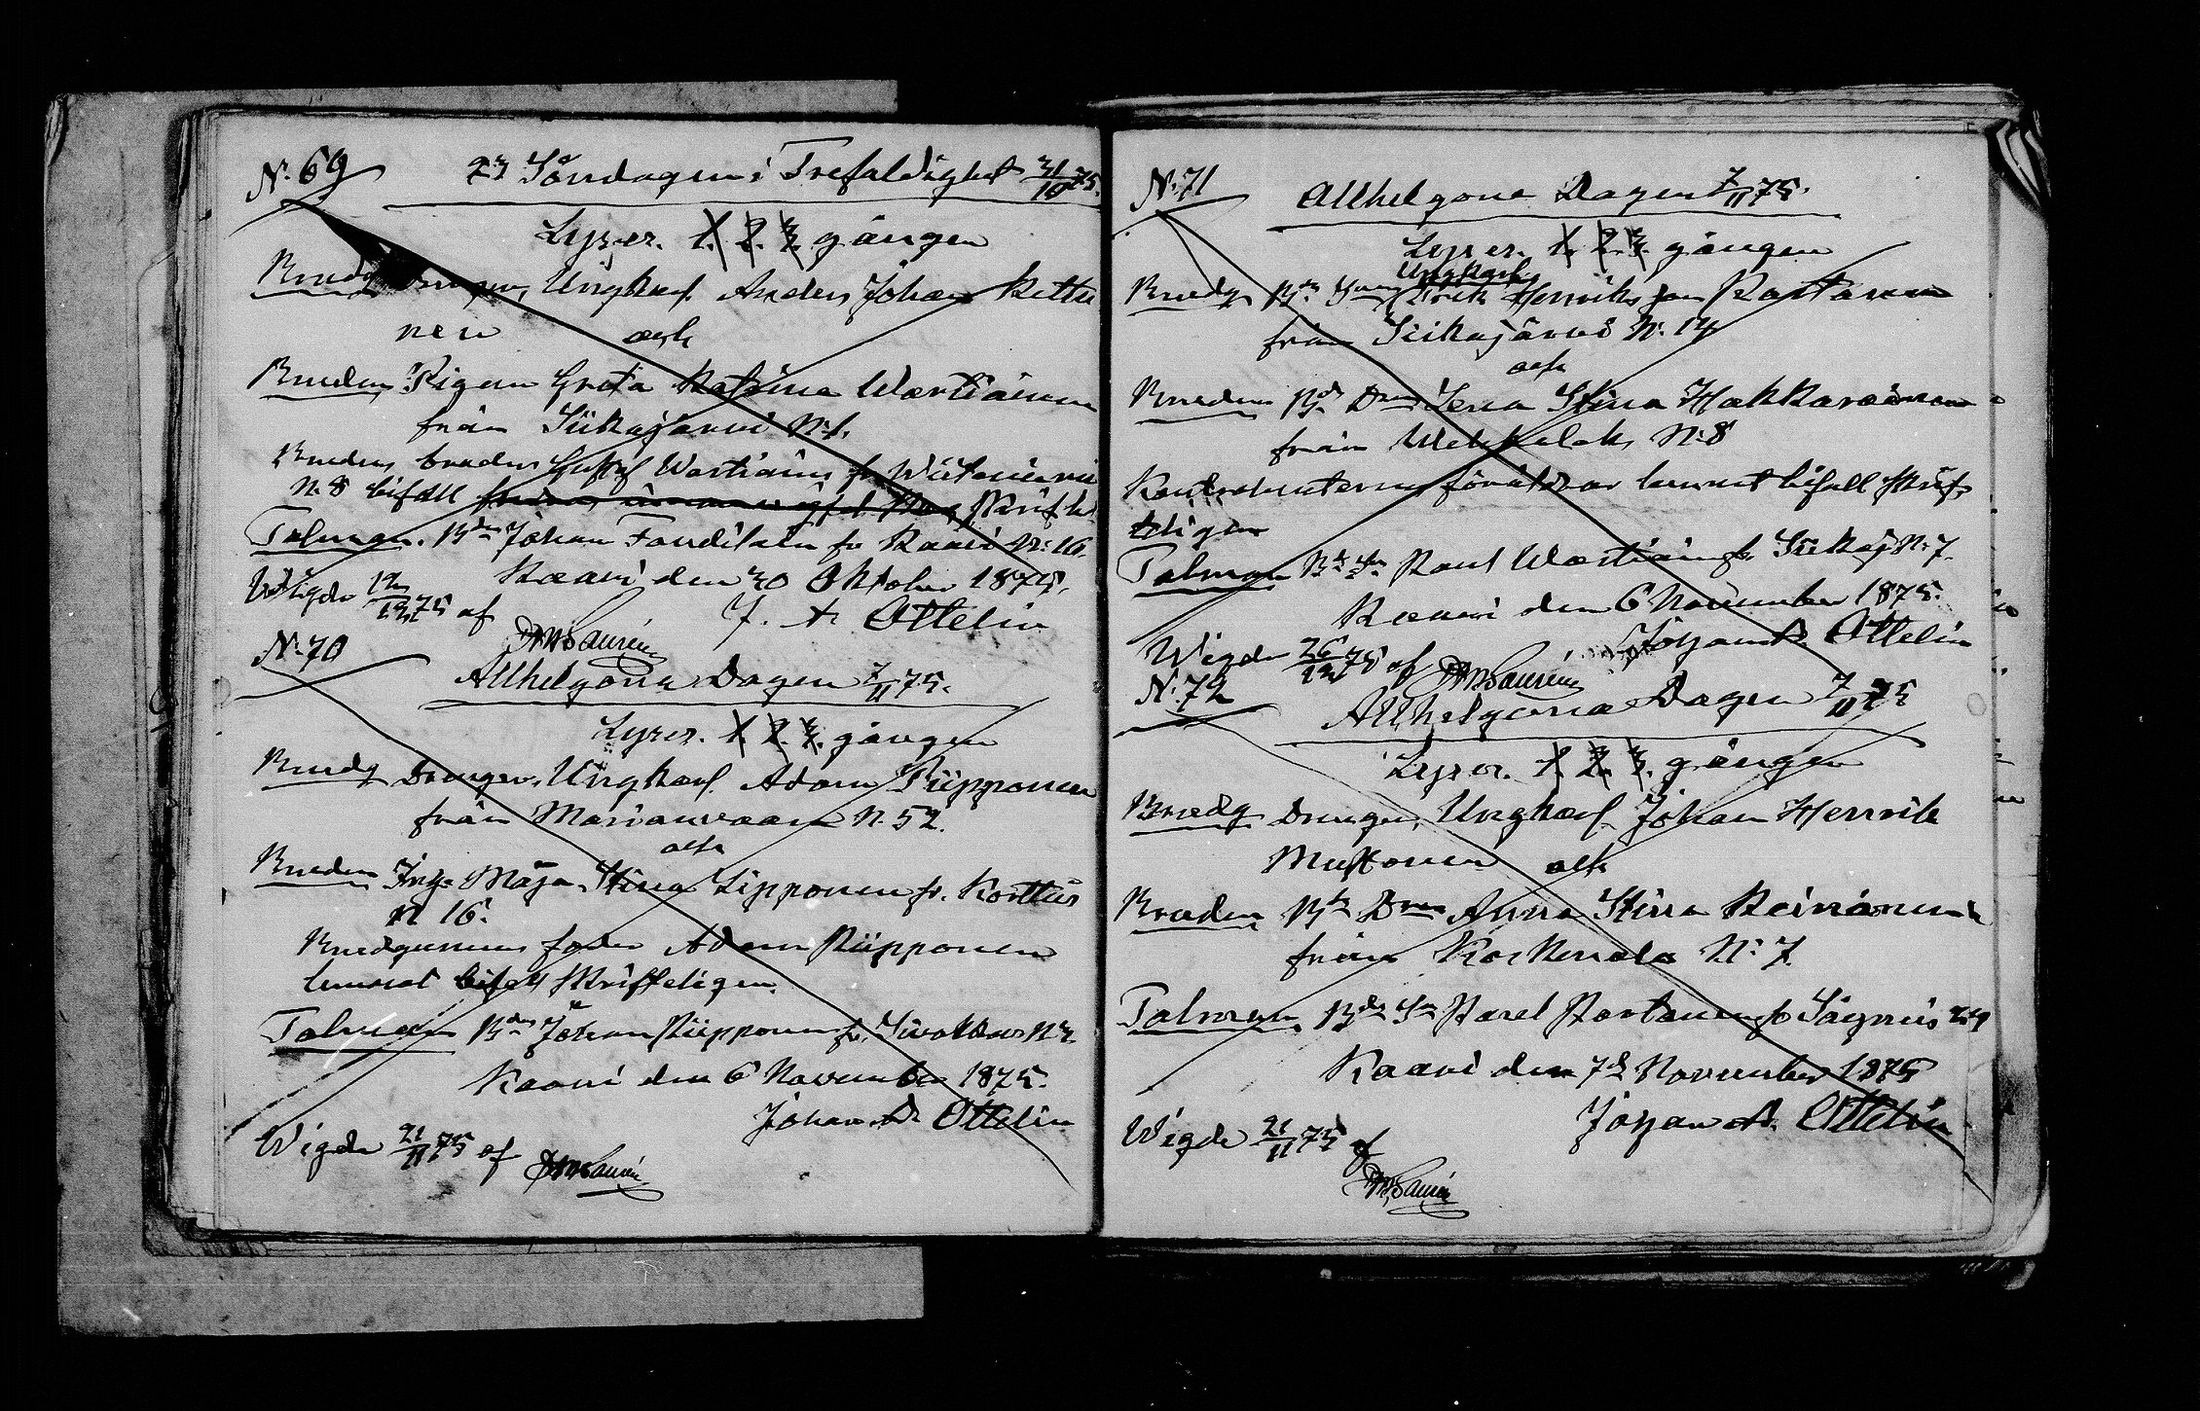 N. 69
23 Söndagen i Trefaldighet 31/10 75.
Lyser. 1. 2. 3. gången
Brudg Drengen, Ungkarl. Anders Johan Kettu
nen och
Bruden Pigan Greta Katrina Wartiainen
från Siikajärvi N:1.
Brudens broder Gustaf Wartiain fr Wiitaniemi
N. 8 bifall skriftl.
Talman. Bdn Johan Tondilain fr Kaavi N: 16.
Kaavi den 30 Oktober 1875.
Wigde 12/12 75 af J. A Ottelin
N. 70
Allhelgona Dagen 7/11 75.
Lyser. 1. 2. 3. gången
Brudg Drengen, Ungkarl. Adam Piipponen
från Marianvaara N. 52.
och
Bruden Inh. Maja Stina Lipponen fr. Kortteis
N 16.
Brudgummens fader Adam Piipponen
lemnat bifall skriffteligen.
Talman Bdn Johan Piipponen fr. N 2
Kaavi den 6 November 1875.
Johan A Ottelin
Wigde 21/11 75 af
N. 71
Allhelgona Dagen 7/11 75.
Lyser. 1. 2. 3. gången
Ungkarl
Brudg Bd Son Erik Henrik Jan Kastanen
från Siikajärvi N: 14
och
Bruden Bd Dren Lena Stina Hakkarainen
från N: 8
Kontrahenternes föräldrar lemnat bifall skrif-
tligen
Talman Bd Sn Paul Wartiain fr Siikaj N: 7
Kaavi den 6 November 1875.
Wigde 26/12 75 af Johan A Ottelin
N. 72
Allhelgona Dagen 7/11 75
Lyser. 1. 2. 3. gången
Brudg Drengen, Ungkarl. Johan Henrik
Mustonen och
Bruden Bd Dren Anna Stina Reinänen
från N: 7.
Talman Bd Sn Pavel Partanen fr
Kaavi den 7d November 1875
Johan A. Ottelin
Wigde 21/11 75 af